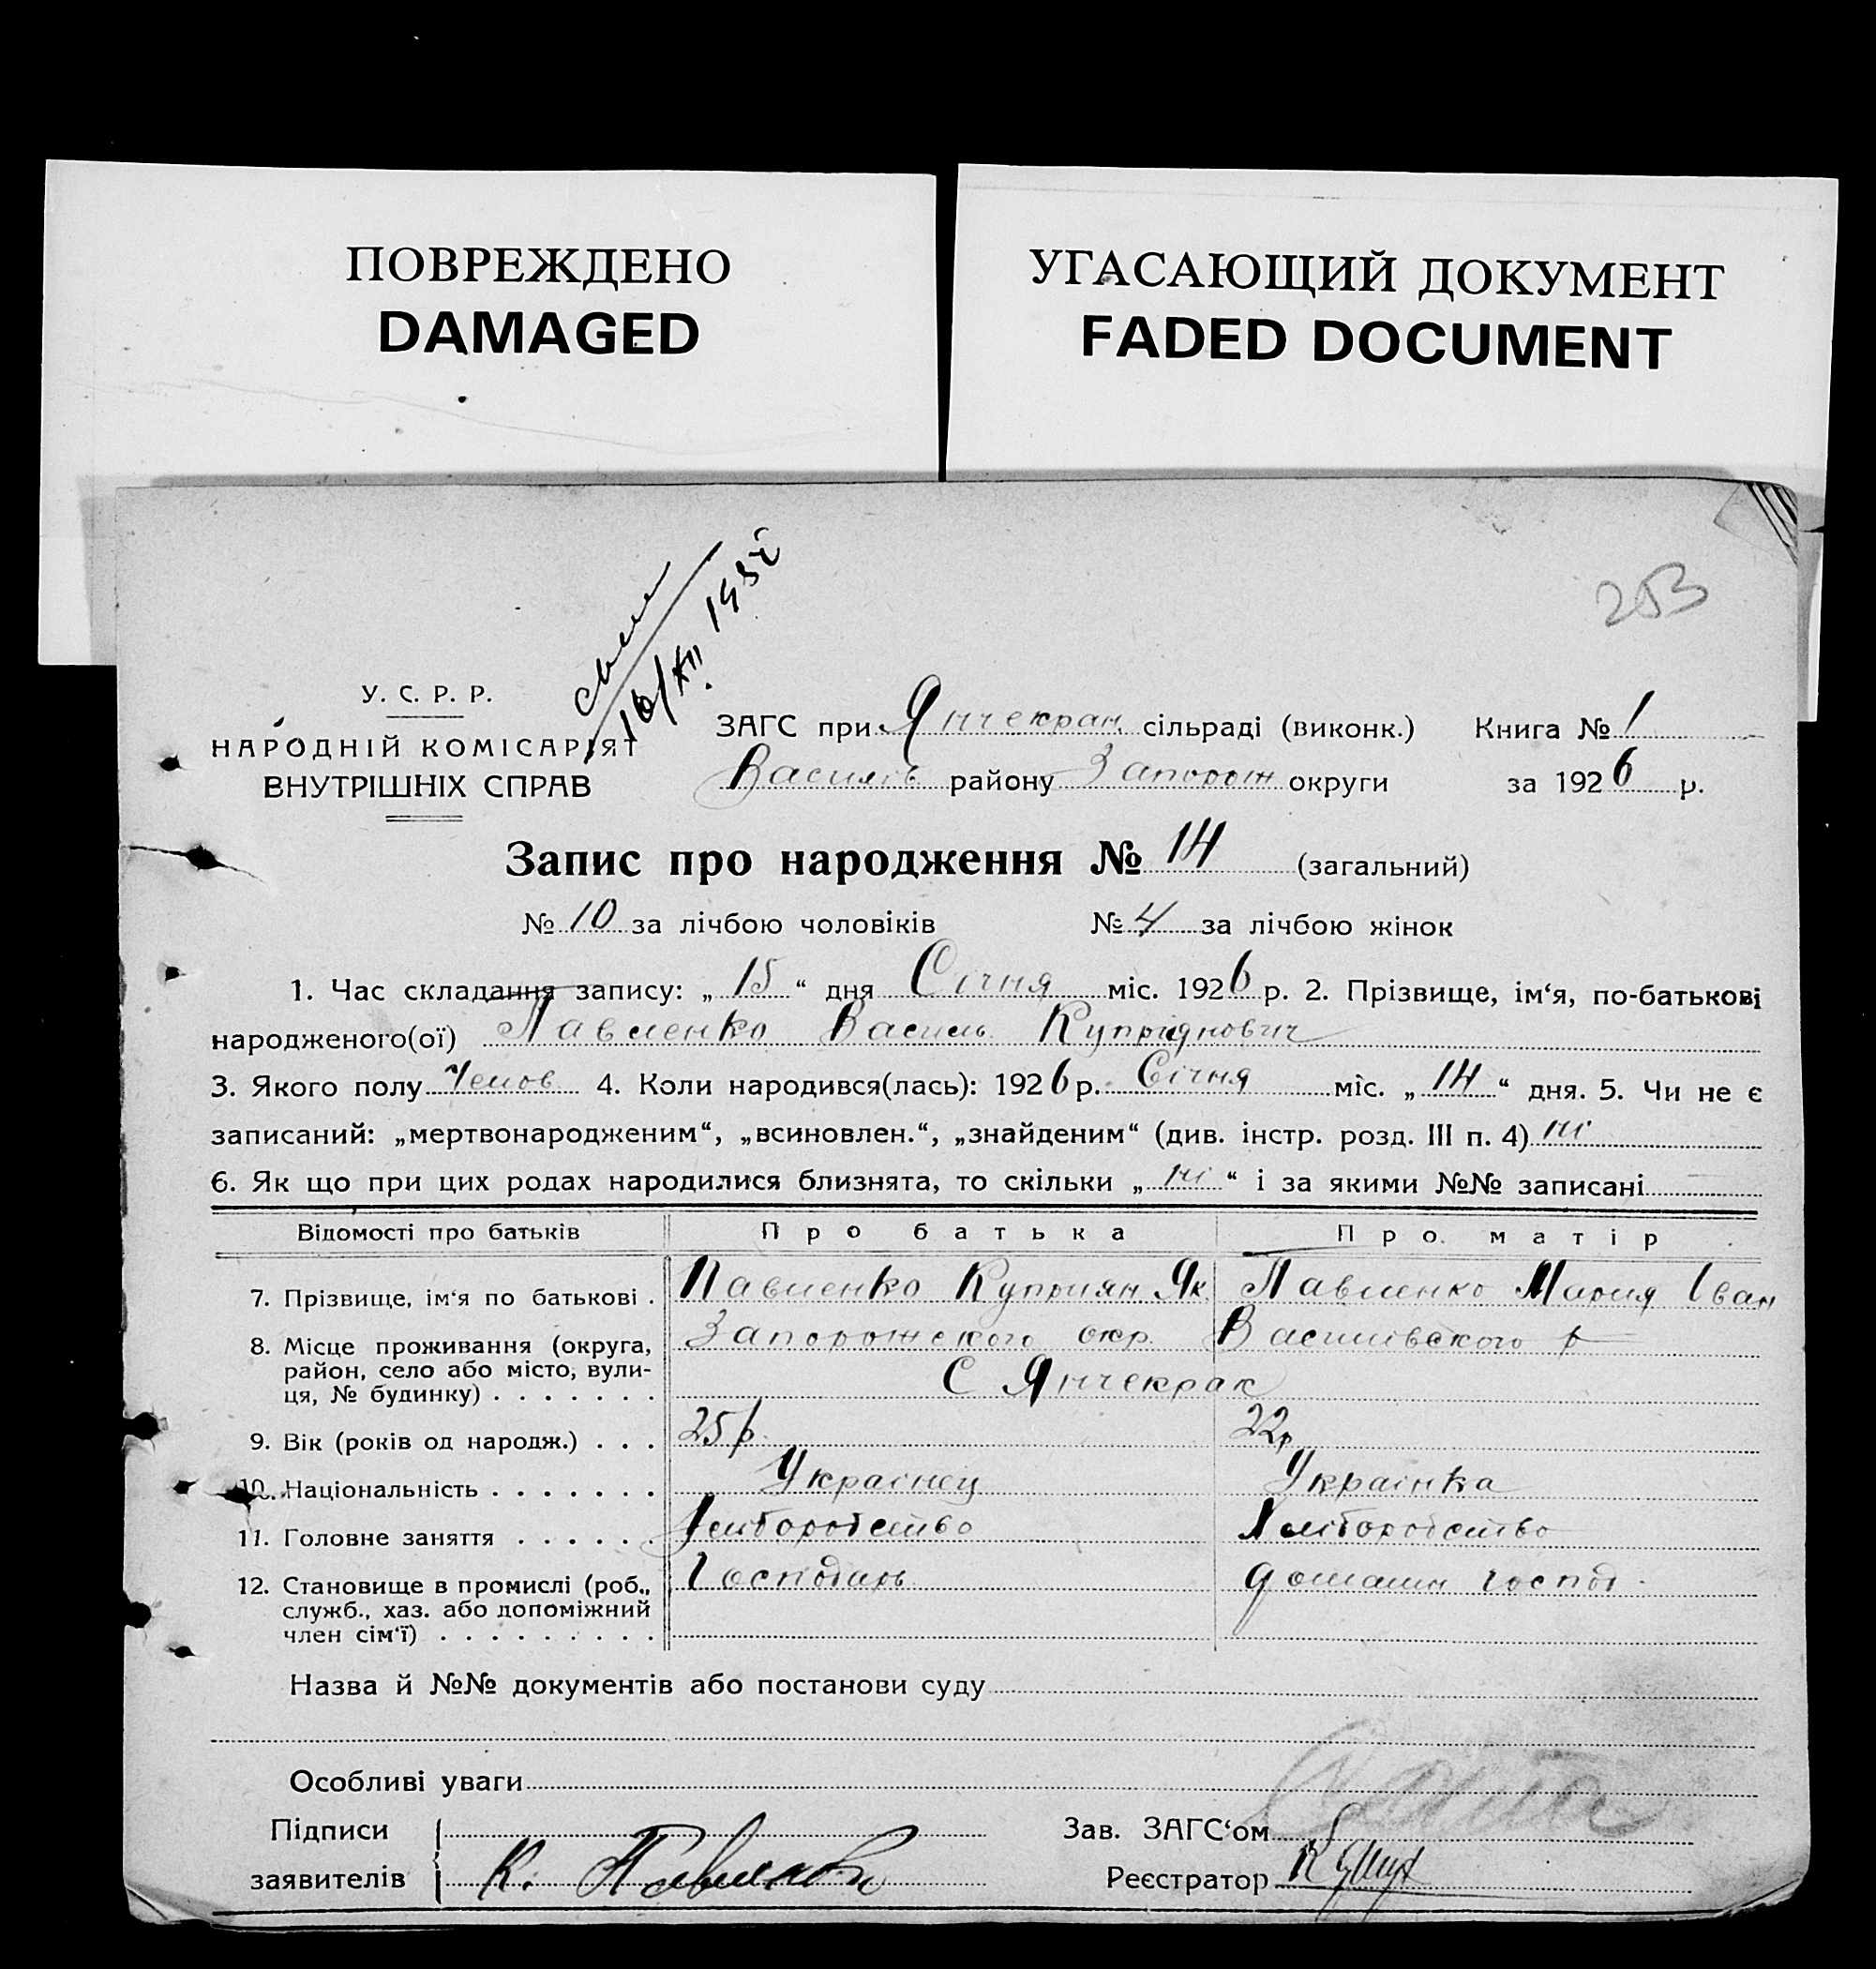 ПОВРЕЖДЕНО
DAMAGED
УГАСАЮЩИЙ ДОКУМЕНТ
FADED DOCUMENT
253
16/XII 195
У. С. Р. Р.
НАРОДНІЙ КОМІСАРІЯТ
ВНУТРІШНІХ СПРАВ
ЗАГС при Янчекран. сільраді (виконк.) Книга № 1
Василів району Запорож округи за 1926 р.
Запис про народження № 14 (загальний)
№ 10 за лічбою чоловіків № 4 за лічбою жінок
1. Час складання запису: „ 15 “ дня Січня міс. 1926 р. 2. Прізвище, ім‘я, по-батькові
народженого(ої) Павленко Василь Купріянович
3. Якого полу Челов 4. Коли народився(лась): 1926 р. Січня міс. „ 14 “ дня. 5. Чи не є
записаний: „мертвонародженим“, „всиновлен.“, „знайденим“ (див. інстр. розд. III п. 4) ні
6. Як що при цих родах народилися близнята, то скільки „ ні “ і за якими №№ записані
Відомості про батьків Про батька Про матір
7. Прізвище, ім‘я по батькові . Павленко Куприян Як Павленко Мария Іван
8. Місце проживання (округа, Запорожского окр. Василівского р
район, село або місто, вули-
ця, № будинку) . . . . . . . С Янчекрак
9. Вік (років од народж.) . . . 25 р. 22 р
10. Національність . . . . . . . Украінец Украінка
11. Головне заняття . . . . . . Хліборобство Хліборобство
12. Становище в промислі (роб., Господарь домашн господ.
служб., хаз. або допоміжний
член сім‘ї) . . . . . . . . .
Назва й №№ документів або постанови суду
Особливі уваги
Підписи
заявителів К. Павленко
Зав. ЗАГС‘ом
Реєстратор